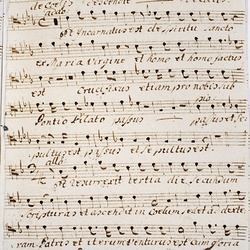 de Coelis descendit
ado
et Incarnatus est de spiritu sancto
ex Maria Virgine et homo et homo factus
est Crucifixus etiam pro nobis sub
Pontio Pilato passus passus et se
pultus est passus et sepultus est.
allo
et resurrexit tertia die secundum
scripturas et ascendit in Coelum sedet a dext
ram Patris et iterum venturus est cum gloria